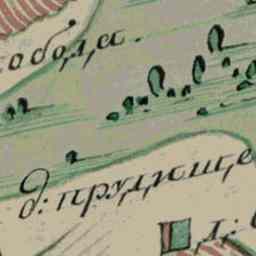 обода.
д: прудище
д: